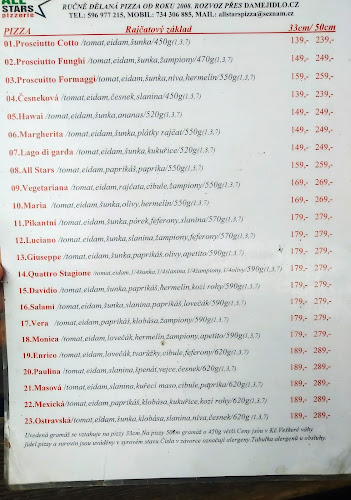 ALL
STARS
pizzerie
RUČNĚ DĚLANÁ PIZZA OD ROKU 2008. ROZVOZ PŘES DAMEJIDLO.CZ
TEL: 596 977 215, MOBIL: 734 306 885, MAIL: allstarspizza@seznam.cz
PIZZA Rajčatový základ 33cm/ 50cm
01.Prosciutto Cotto /tomat,eidam,šunka/450g(1,3,7) 139,- 239,-
02.Prosciutto Funghi /tomat,eidam,šunka,žampiony/470g(1,3,7) 149,- 249,-
03.Proscuitto Formaggi/tomat,eidam,šunka,niva,hermelín/550g(1,3,7) 159,- 259,-
04.Česneková /tomat,eidam,česnek,slanina/450g(1,3,7) 149,- 249,-
05.Hawai /tomat,eidam,šunka,ananas/520g(1,3,7) 149,- 249,-
06.Margherita /tomat,eidam,šunka,plátky rajčat/550g(1,3,7) 149,- 249,-
07.Lago di garda /tomat,eidam,šunka,kukuřice/520g(1,3,7) 149,- 249,-
08.All Stars /tomat,eidam,paprikáš,paprika/550g(1,3,7) 159,- 259,-
09.Vegetariana /tomat,eidam,rajčata,cibule,žampiony/550g(1,3,7) 169,- 269,-
10.Maria /tomat,eidam,šunka,olivy,hermelín/550g(1,3,7) 169,- 269,-
11.Pikantní /tomat,eidam,šunka,pórek,feferony,slanina/570g(1,3,7) 179,- 279,-
12.Luciano /tomat,eidam,šunka,slanina,žampiony,feferony/570g(1,3,7) 179,- 279,-
13.Giuseppe /tomat,eidam,šunka,paprikáš,olivy,apetito/590g(1,3,7) 179,- 279,-
14.Quattro Stagione /tomat,eidam,1/4šunka,1/4slanina,1/4žampiony,1/4olivy/590g(1,3,7) 179,- 279,-
15.Davidio /tomat,eidam,paprikáš,hermelín,kozí rohy/590g(1,3,7) 179,- 279,-
16.Salami /tomat,eidam,šunka,slanina,paprikáš,lovečák/590g(1,3,7) 179,- 279,-
17.Vera /tomat,eidam,paprikáš,klobása,žampiony/590g(1,3,7) 179,- 279,-
18.Monica /tomat,eidam,lovečák,hermelín,žampiony,apetito/590g(1,3,7) 179,- 279,-
19.Enrico /tomat,eidam,lovečák,tvarůžky,cibule,feferony/620g(1,3,7) 189,- 289,-
20.Paulina /tomat,eidam,slanina,špenát,vejce,česnek/620g(1,3,7) 189,- 289,-
21.Masová /tomat,eidam,slanina,kuřecí maso,cibule,paprika/620g(1,3,7) 189,- 289,-
22.Mexická /tomat,eidam,paprikáš,klobása,kukuřice,kozí rohy/620g(1,3,7) 189,- 289,-
23.Ostravská/tomat,eidam,šunka,klobása,slanina,niva,česnek/620g(1,3,7) 189,- 289,-
Uvedená gramáž se vztahuje na pizzy 33cm.Na pizzy 50cm gramáž o 450g větší.Ceny jsou v Kč.Veškeré váhy
jídel pizzy a surovin jsou uváděny v syrovém stavu.Čísla v závorce označují alergeny.Tabulka alergenů u obsluhy.